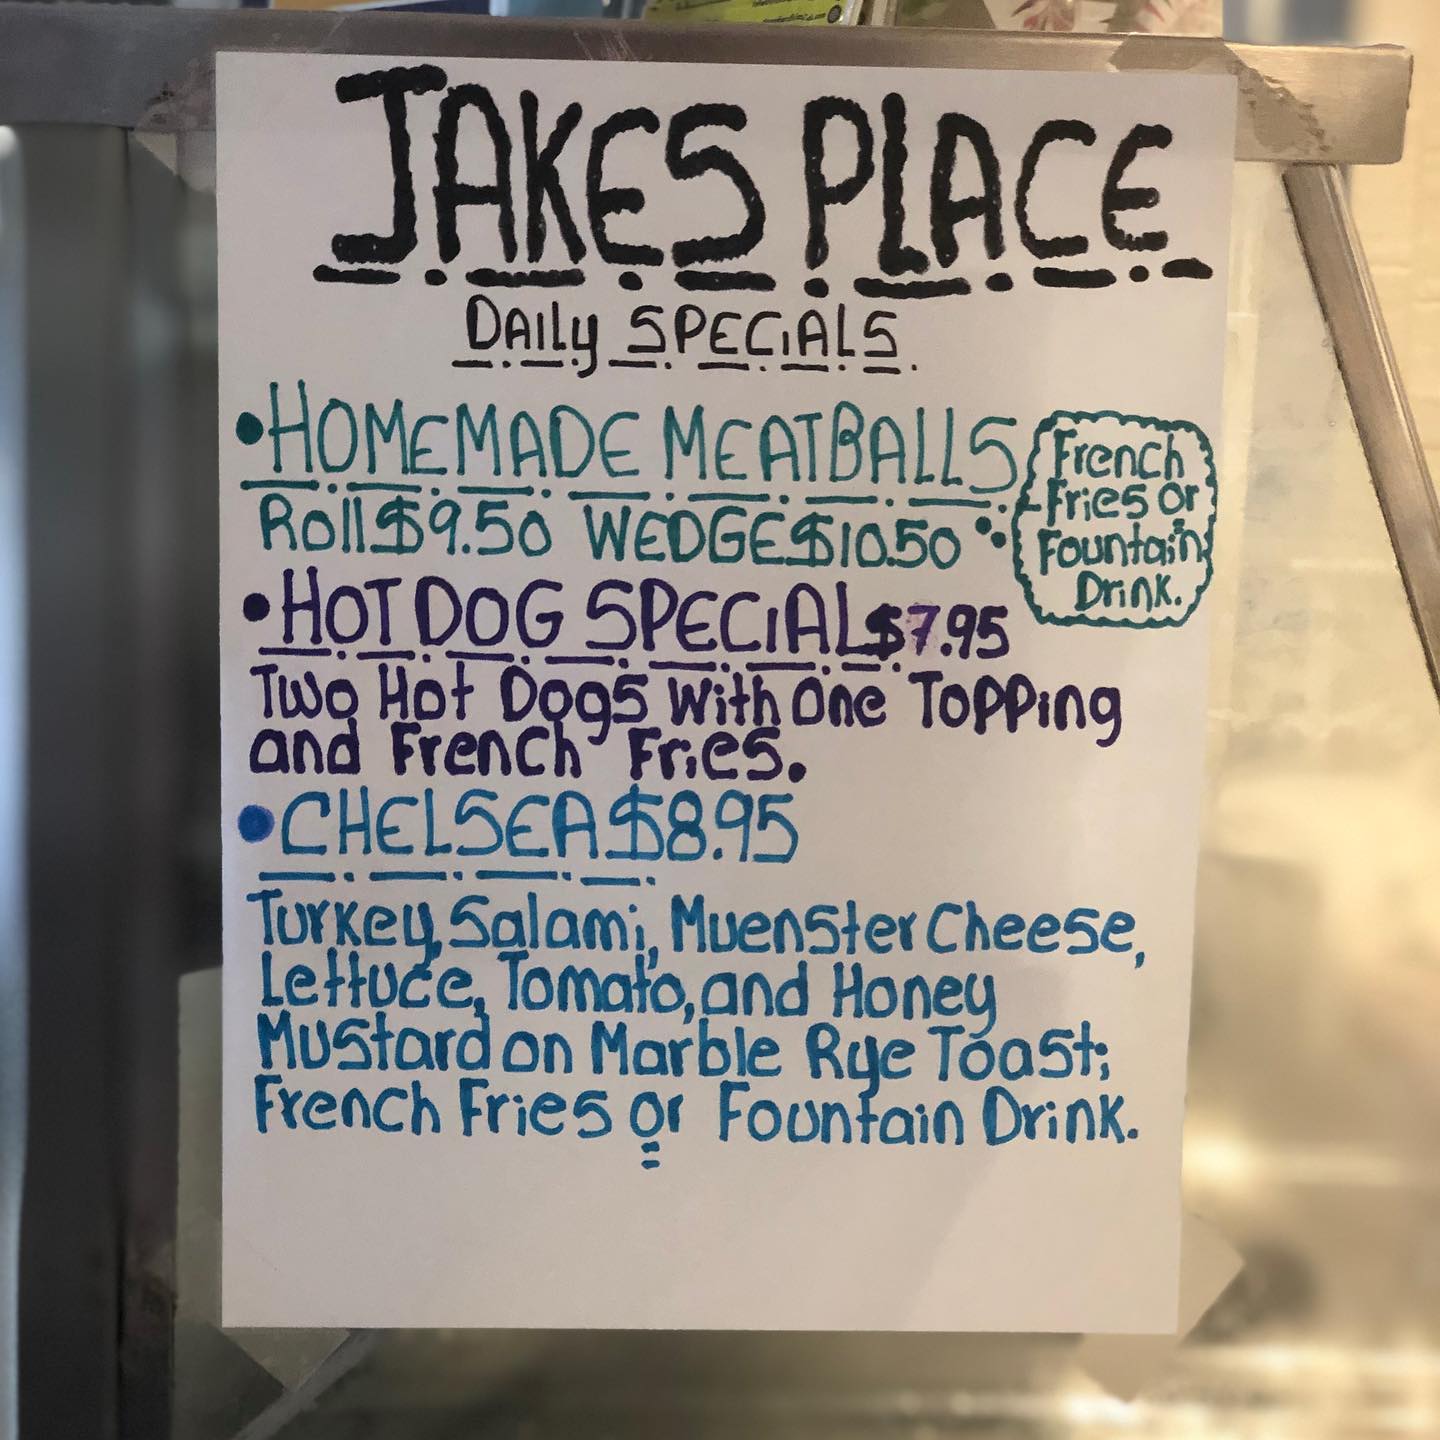 JAKES PLACE
Daily SPECIALS.
• HOMEMADE MEATBALLS
Roll $9.50 WEDGE $10.50
French
Fries or
Fountain
Drink.
• HOT DOG SPECIAL $7.95
Two Hot Dogs With One Topping
and French Fries.
• CHELSEA $8.95
Turkey, Salami, Muenster Cheese,
Lettuce, Tomato, and Honey
Mustard on Marble Rye Toast;
French Fries or Fountain Drink.